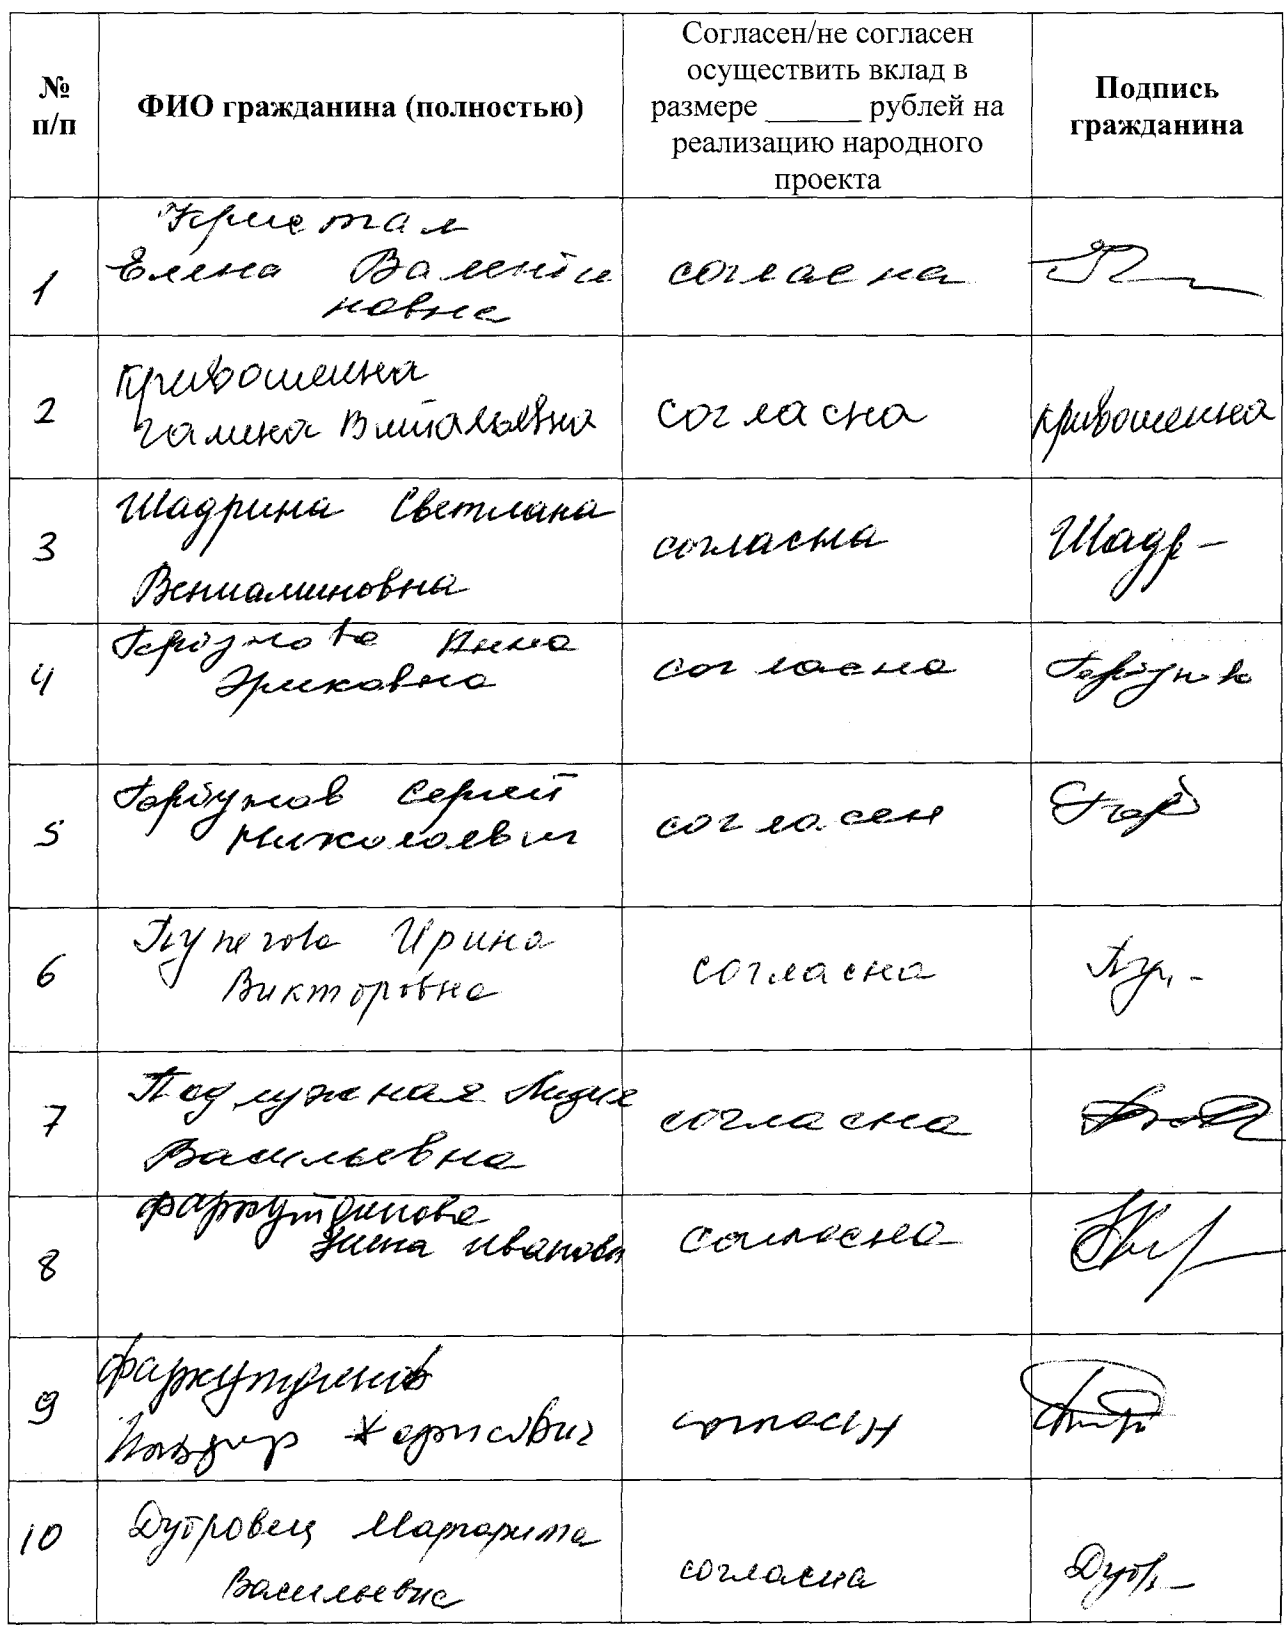 № п/п
ФИО гражданина (полностью)
Согласен/не согласен
осуществить вклад в
размере ______ рублей на
реализацию народного
проекта
Подпись
гражданина
1
Кристал
Елена Валенти
новна
согласна
2
Кривошеина
Галина Витальевна
согласна
Кривошеина
3
Шадрина Светлана
Вениаминовна
согласна
Шадр-
4
Горбунова Анна
Эриковна
согласна
Горбунова
5
Горбунов Сергей
Николаевич
согласен
Гор
6
Пунегова Ирина
Викторовна
согласна
Пун-
7
Подлужная Лидия
Васильевна
согласна
8
Фархутдинова
Иванов
согласна
9
Фархутдинов
Харисович
согласен
10
Дубровец Маргарита
Васильевна
согласна
Дубр-